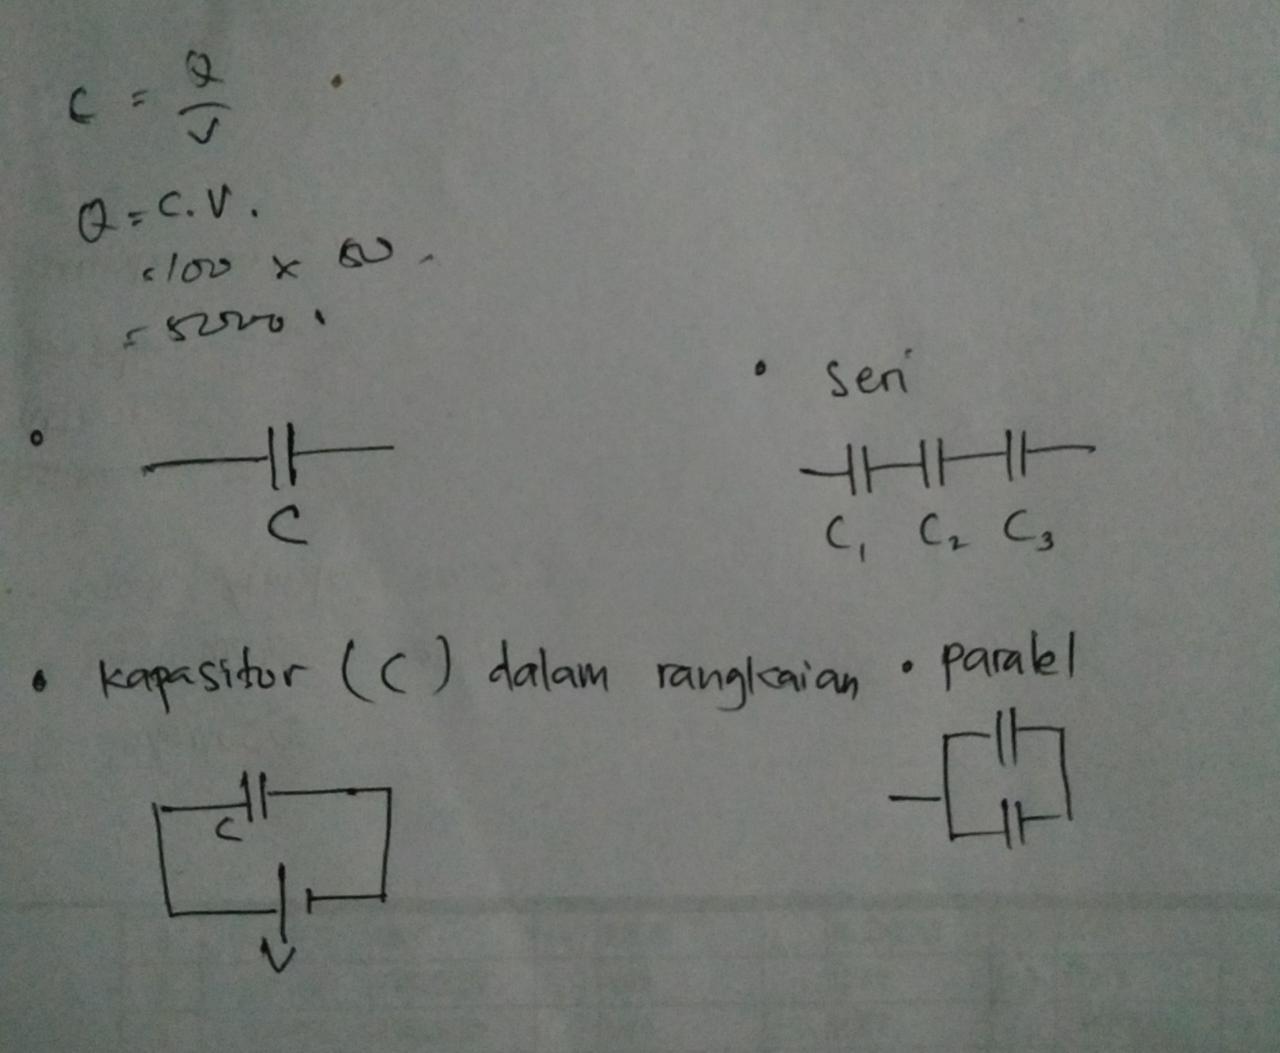 C = Q/V
Q = C.V.
= 100 × 50.
= 5000.
• seri
C
C₁ C₂ C₃
• kapasitor (C) dalam rangkaian
• paralel
C
V